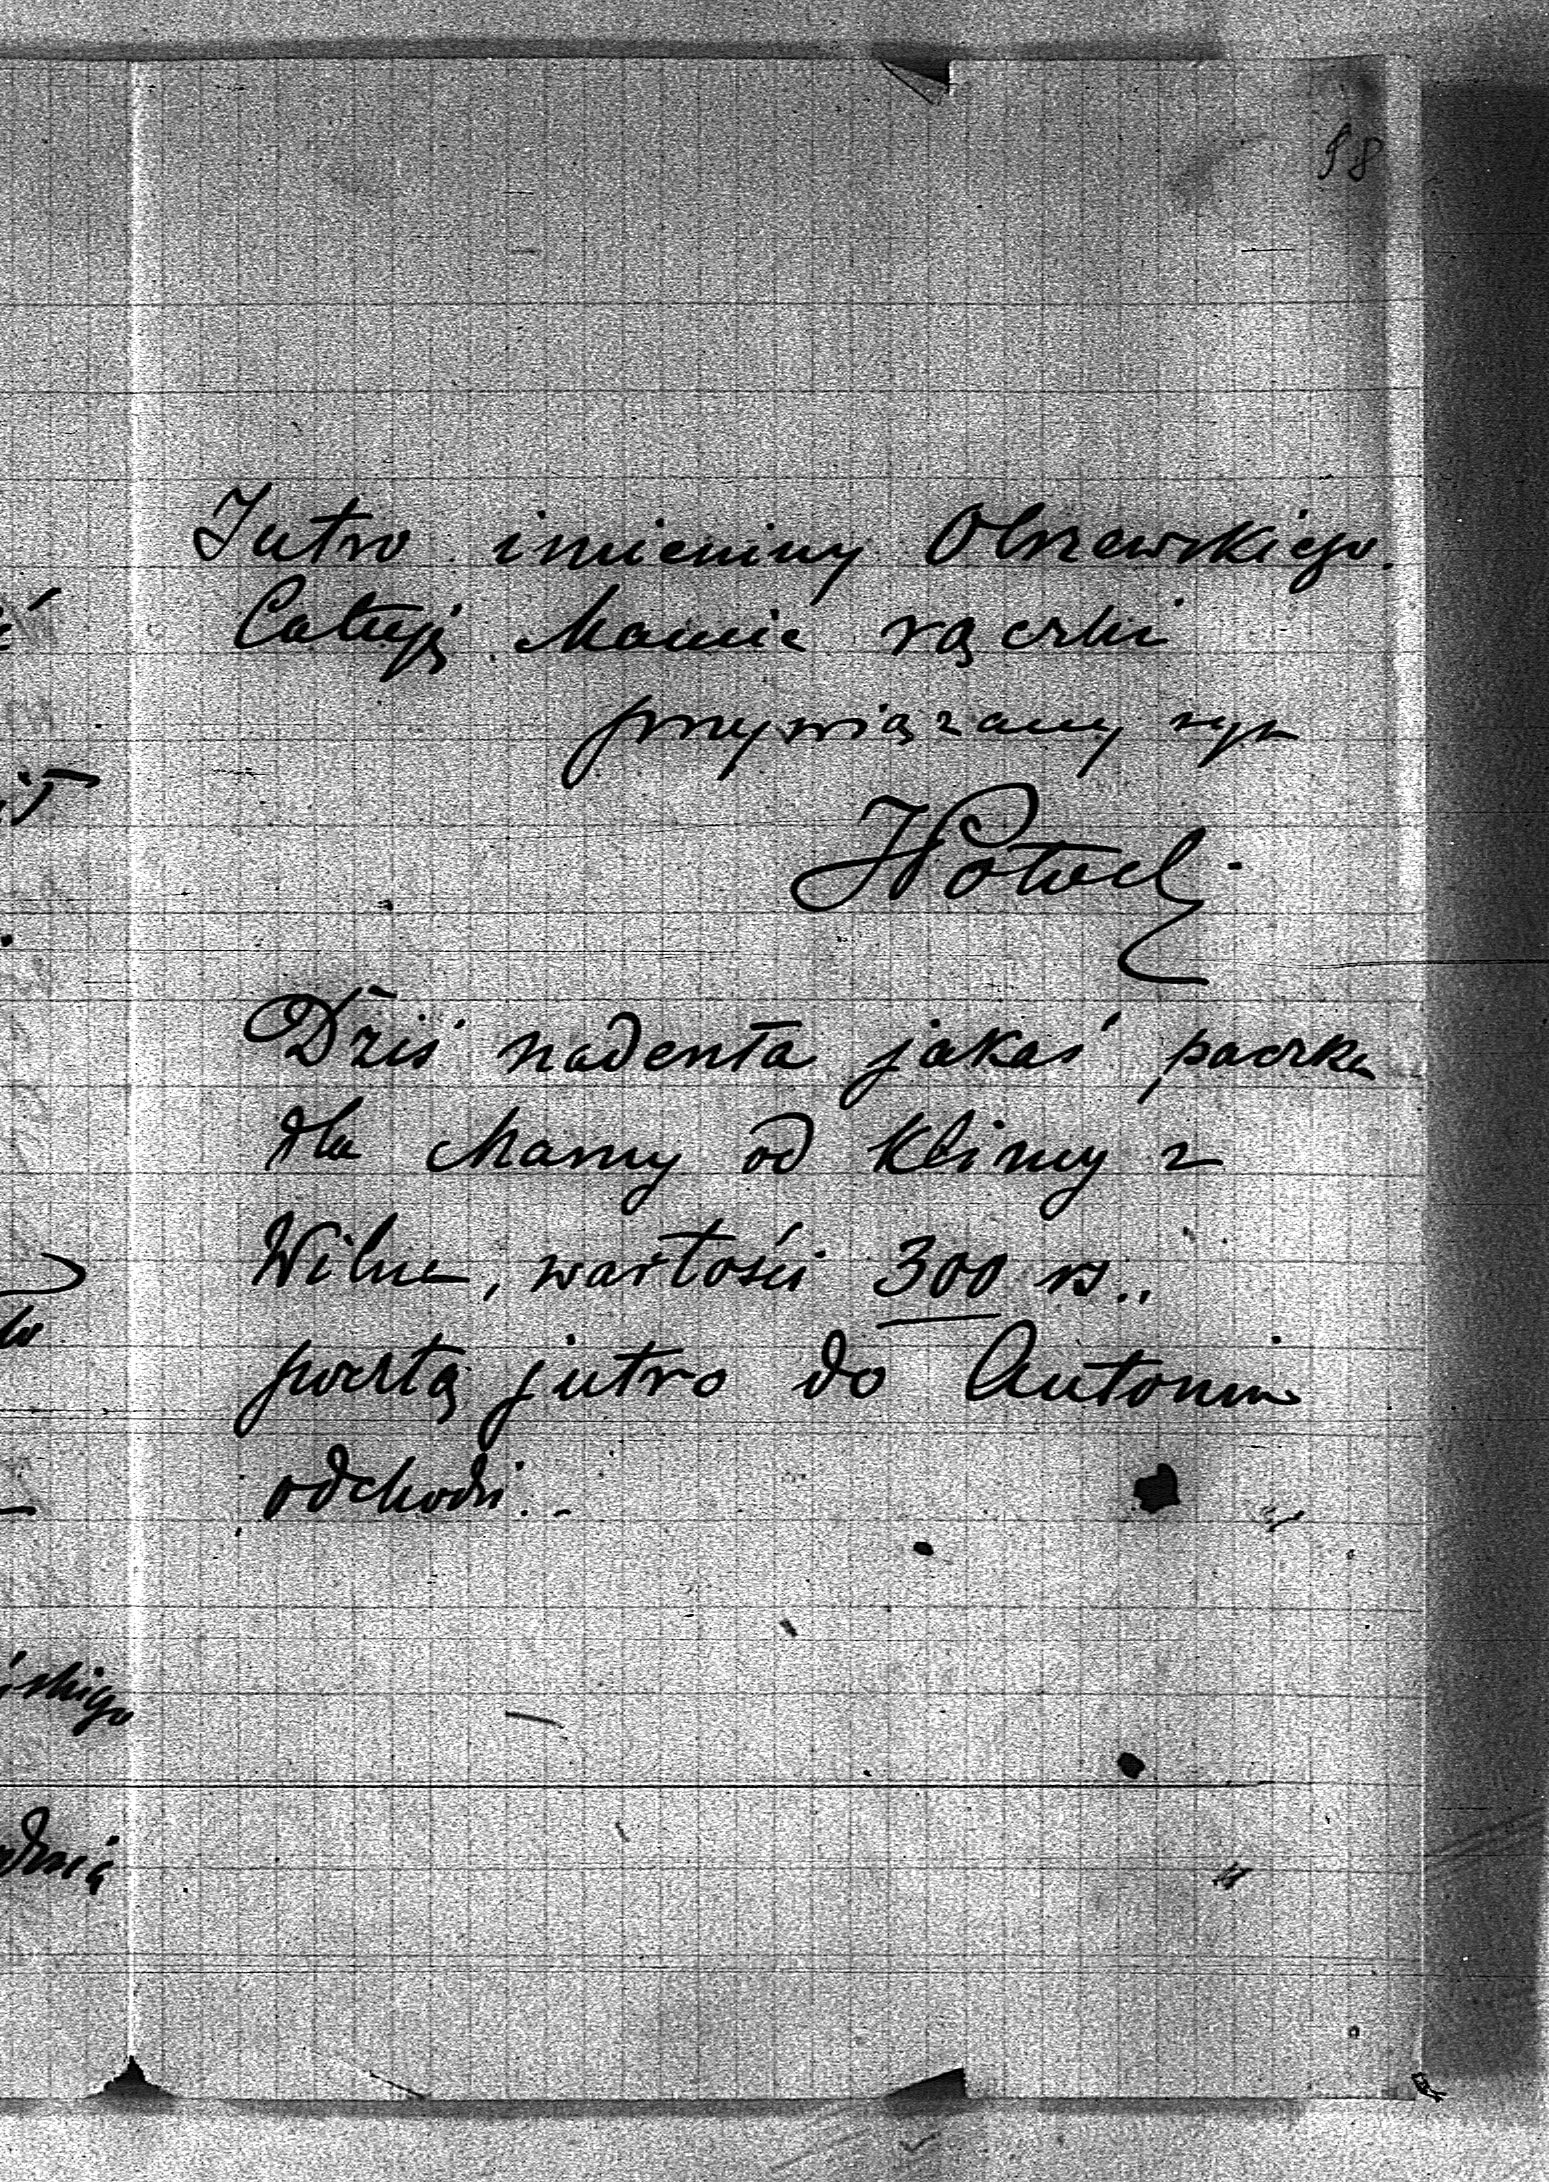 98
Jutro imieniny Olszewskiego.
Całuję Mamie rączki
przywiązany syn
JPotocki
Dziś nadeszła jakaś paczka
dla Mamy od Klimy z
Wilna, wartości 300 rs..
pocztą jutro do Antonin
odchodzi. -